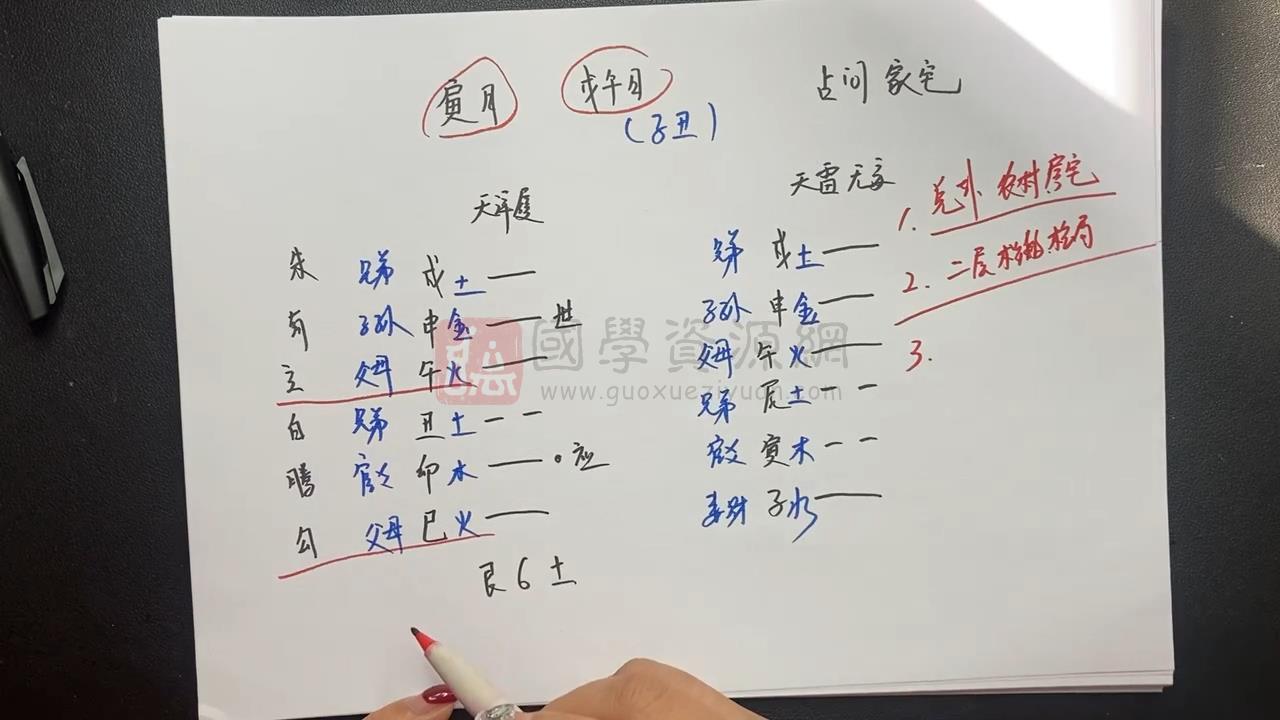 寅月 戌午日 占问家宅
(子丑)
天泽履 天雷无妄
朱 兄弟 戌土 兄弟 戌土
子孙 申金 世 子孙 申金
玄 父母 午火 父母 午火
白 兄弟 丑土 兄弟 辰土
腾 官 卯木 应 官 寅木
勾 父母 巳火 妻财 子水
艮6土
1. 农村房宅
2. 二层 格局
3.
國學資源網
www.guoxueziyuan.com